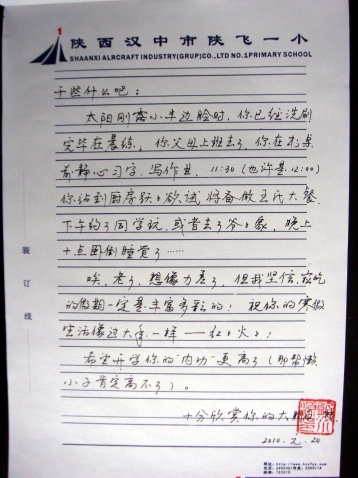 陕西汉中市陕飞一小
SHAANXI AIRCRAFT INDUSTRY(GRUP)CO.,LTD NO.1PRIMARY SCHOOL
干些什么吧:
太阳刚露小半边脸时,你已经洗刷
完毕在晨练,你父母上班去了,你在书桌
前静心习字,写作业,11:30(也许是12:00)
你站到厨房跃跃欲试将备做王氏大餐,
下午约了同学玩,或者去了爷爷家,晚上
十点卧倒睡觉了……
唉,老了,想像力差了,但我坚信,
的假期一定是丰富多彩的!祝你的寒假
生活像过大年一样——红红火火!
希望开学你的"内功"更高了(那帮懒
小子肯定高不了)。
十分欣赏你的大
2010.元.20
装订线